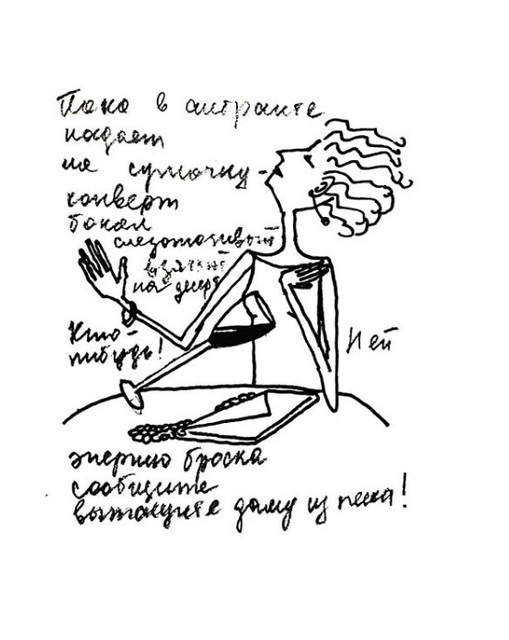 Пока в антракте
падает
на сумочку-
конверт
бокал
слезоточивый
взятый
на десерт
Кто-
нибудь!
Ней
энергию броска
сообщите
вытащите даму из пике!